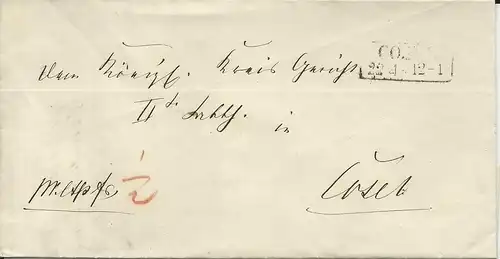 COSEL
22 4 12-1
Dem Königl. Kreis Gericht
II te Abth.
in
Cosel